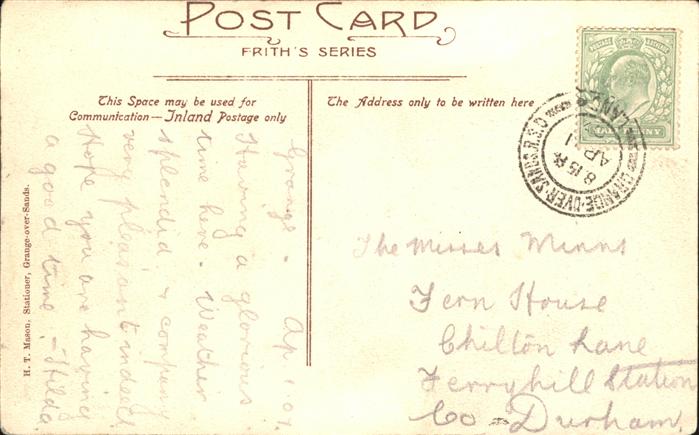 POST CARD
FRITH'S SERIES
This Space may be used for
Communication — Inland Postage only
The Address only to be written here
HALFPENNY
GRANGE-OVER-SANDS. R.S.O.
LANCS
8 15 PM
AP 1
Grange - Ap 1. 07.
Having a glorious
time here - Weather
splendid & company
very pleasant indeed
Hope you are having
a good time - Hilda
The Misses Minns
Fern House
Chilton Lane
Ferryhill Station
Co - Durham.
H. T. Mason, Stationer, Grange-over-Sands.